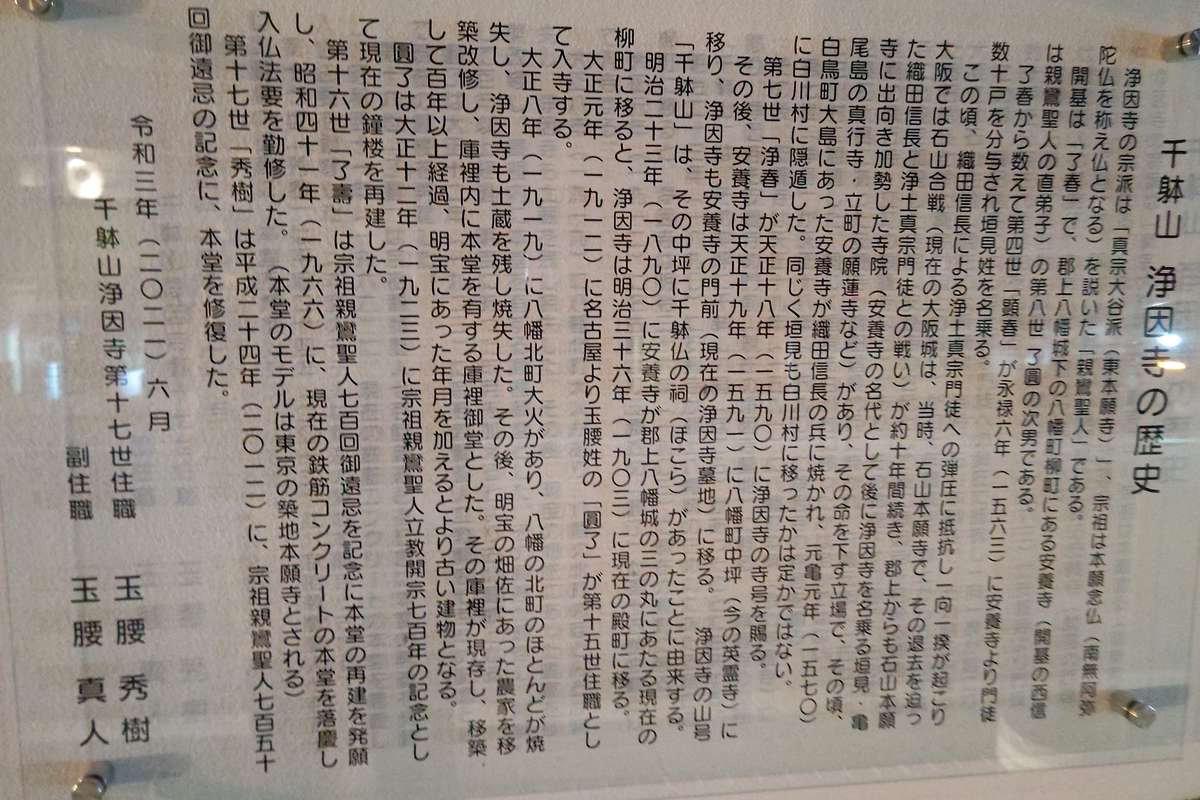 千躰山 浄因寺の歴史
浄因寺の宗派は「真宗大谷派（東本願寺）」、宗祖は本願念仏（南無阿弥
陀仏を称え仏となる）を説いた「親鸞聖人」である。
開基は「了春」で、郡上八幡城下の八幡町柳町にある安養寺（開基の西信
は親鸞聖人の直弟子）の第八世了圓の次男である。
了春から数えて第四世「顕春」が永禄六年（一五六三）に安養寺より門徒
数十戸を分与され垣見姓を名乗る。
この頃、織田信長による浄土真宗門徒への弾圧に抵抗し一向一揆が起こり
大阪では石山合戦（現在の大阪城は、当時、石山本願寺で、その退去を迫っ
た織田信長と浄土真宗門徒との戦い）が約十年間続き、郡上からも石山本願
寺に出向き加勢した寺院（安養寺の名代として後に浄因寺を名乗る垣見・亀
尾島の真行寺・立町の願蓮寺など）があり、その命を下す立場で、その頃、
白鳥町大島にあった安養寺が織田信長の兵に焼かれ、元亀元年（一五七〇）
に白川村に隠遁した。同じく垣見も白川村に移ったかは定かではない。
第七世「浄春」が天正十八年（一五九〇）に浄因寺の寺号を賜る。
その後、安養寺は天正十九年（一五九一）に八幡町中坪（今の英霊寺）に
移り、浄因寺も安養寺の門前（現在の浄因寺墓地）に移る。 浄因寺の山号
「千躰山」は、その中坪に千躰仏の祠（ほこら）があったことに由来する。
明治二十三年（一八九〇）に安養寺が郡上八幡城の三の丸にあたる現在の
柳町に移ると、浄因寺は明治三十六年（一九〇三）に現在の殿町に移る。
大正元年（一九一二）に名古屋より玉腰姓の「圓了」が第十五世住職とし
て入寺する。
大正八年（一九一九）に八幡北町大火があり、八幡の北町のほとんどが焼
失し、浄因寺も土蔵を残し焼失した。その後、明宝の畑佐にあった農家を移
築改修し、庫裡内に本堂を有する庫裡御堂とした。その庫裡が現存し、移築
して百年以上経過、明宝にあった年月を加えるとより古い建物となる。
圓了は大正十二年（一九二三）に宗祖親鸞聖人立教開宗七百年の記念とし
て現在の鐘楼を再建した。
第十六世「了壽」は宗祖親鸞聖人七百回御遠忌を記念に本堂の再建を発願
し、昭和四十一年（一九六六）に、現在の鉄筋コンクリートの本堂を落慶し
入仏法要を勤修した。（本堂のモデルは東京の築地本願寺とされる）
第十七世「秀樹」は平成二十四年（二〇一二）に、宗祖親鸞聖人七百五十
回御遠忌の記念に、本堂を修復した。
令和三年（二〇二一）六月
千躰山浄因寺第十七世住職 玉腰 秀樹
副住職 玉腰 真人